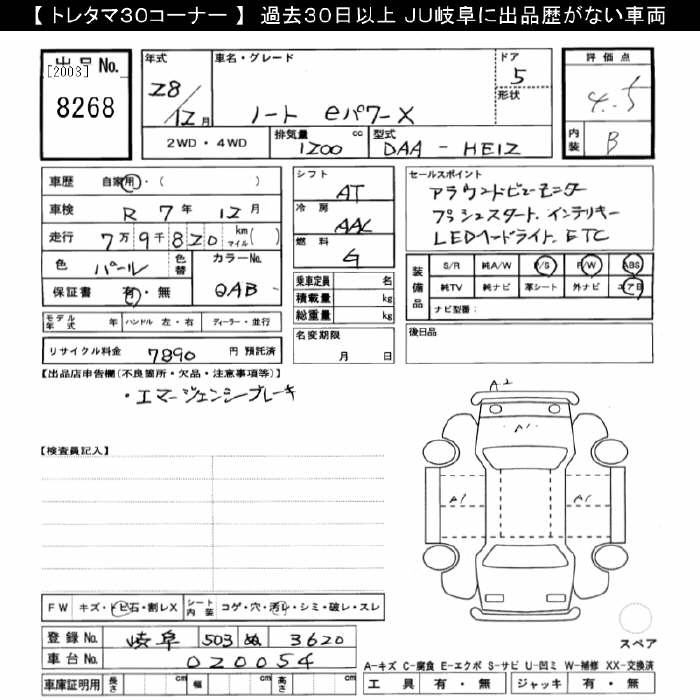 【 トレタマ30コーナー 】 過去30日以上 JU岐阜に出品歴がない車両
出品No.
[2003]
8268
年式
28/12月
車名・グレード
ノート eパワーX
ドア
5
形状
評価点
4.5
内装
B
2WD・4WD
排気量
1200 cc
型式
DAA - HE12
車歴 自家用・( )
車検 R 7年 12月
走行 7万9千820 km マイル( )
色 パール
色替
カラーNo.
QAB
保証書 有・無
シフト
AT
冷房
AAC
燃料
G
セールスポイント
アラウンドビューモニター
プッシュスタート. インテリキー
LEDヘッドライト. ETC
装備品
S/R 純A/W P/S P/W ABS
純TV 純ナビ 革シート 外ナビ エアB
ナビ型番:
乗車定員 名
積載量 kg
総重量 kg
モデル年式 年 ハンドル 左・右 ディーラー・並行
リサイクル料金 7890 円 預託済
名変期限
月 日
後日品
【出品店申告欄(不良箇所・欠品・注意事項等)】
・エマージェンシーブレーキ
A2
A1
A1
A1
【検査員記入】
FW キズ・トビ石・割レX シート内装 コゲ・穴・汚レ・シミ・破レ・スレ
登録No. 岐阜 503 ぬ 3620
車台No. 020054
車庫証明用 長さ cm 幅 cm 高さ cm
スペア
A-キズ C-腐食 E-エクボ S-サビ U-凹ミ W-補修 XX-交換済
工具 有・無 ジャッキ 有・無